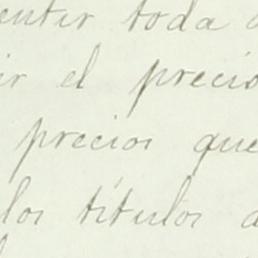 entir toda
ir el precio
precios que
los títulos